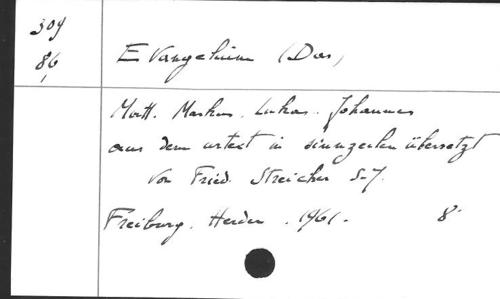 304
86
Evangelium (Das)
Matt. Markus. Lukas. Johannes
aus dem urtext in sinnzeilen übersetzt
von Fried. Streicher S-J.
Freiburg. Herder. 1961. 8°